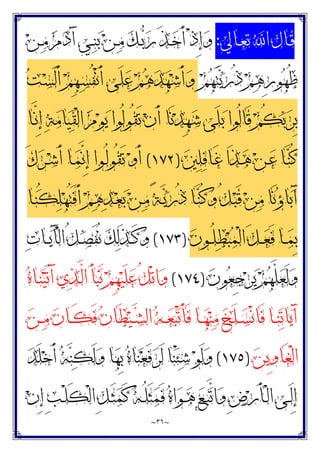 قَالَ اللهُ تَعَالَى: وَإِذْ أَخَذَ رَبُّكَ مِنْ بَنِي آدَمَ مِنْ
ظُهُورِهِمْ ذُرِّيَّتَهُمْ وَأَشْهَدَهُمْ عَلَى أَنْفُسِهِمْ أَلَسْتُ
بِرَبِّكُمْ قَالُوا بَلَى شَهِدْنَا أَنْ تَقُولُوا يَوْمَ الْقِيَامَةِ إِنَّا
كُنَّا عَنْ هَذَا غَافِلِينَ (١٧٢) أَوْ تَقُولُوا إِنَّمَا أَشْرَكَ
آبَاؤُنَا مِنْ قَبْلُ وَكُنَّا ذُرِّيَّةً مِنْ بَعْدِهِمْ أَفَتُهْلِكُنَا
بِمَا فَعَلَ الْمُبْطِلُونَ (١٧٣) وَكَذَلِكَ نُفَصِّلُ الْآيَاتِ
وَلَعَلَّهُمْ يَرْجِعُونَ (١٧٤) وَاتْلُ عَلَيْهِمْ نَبَأَ الَّذِي آتَيْنَاهُ
آيَاتِنَا فَانْسَلَخَ مِنْهَا فَأَتْبَعَهُ الشَّيْطَانُ فَكَانَ مِنَ
الْغَاوِينَ (١٧٥) وَلَوْ شِئْنَا لَرَفَعْنَاهُ بِهَا وَلَكِنَّهُ أَخْلَدَ
إِلَى الْأَرْضِ وَاتَّبَعَ هَوَاهُ فَمَثَلُهُ كَمَثَلِ الْكَلْبِ إِنْ
~٣٦~